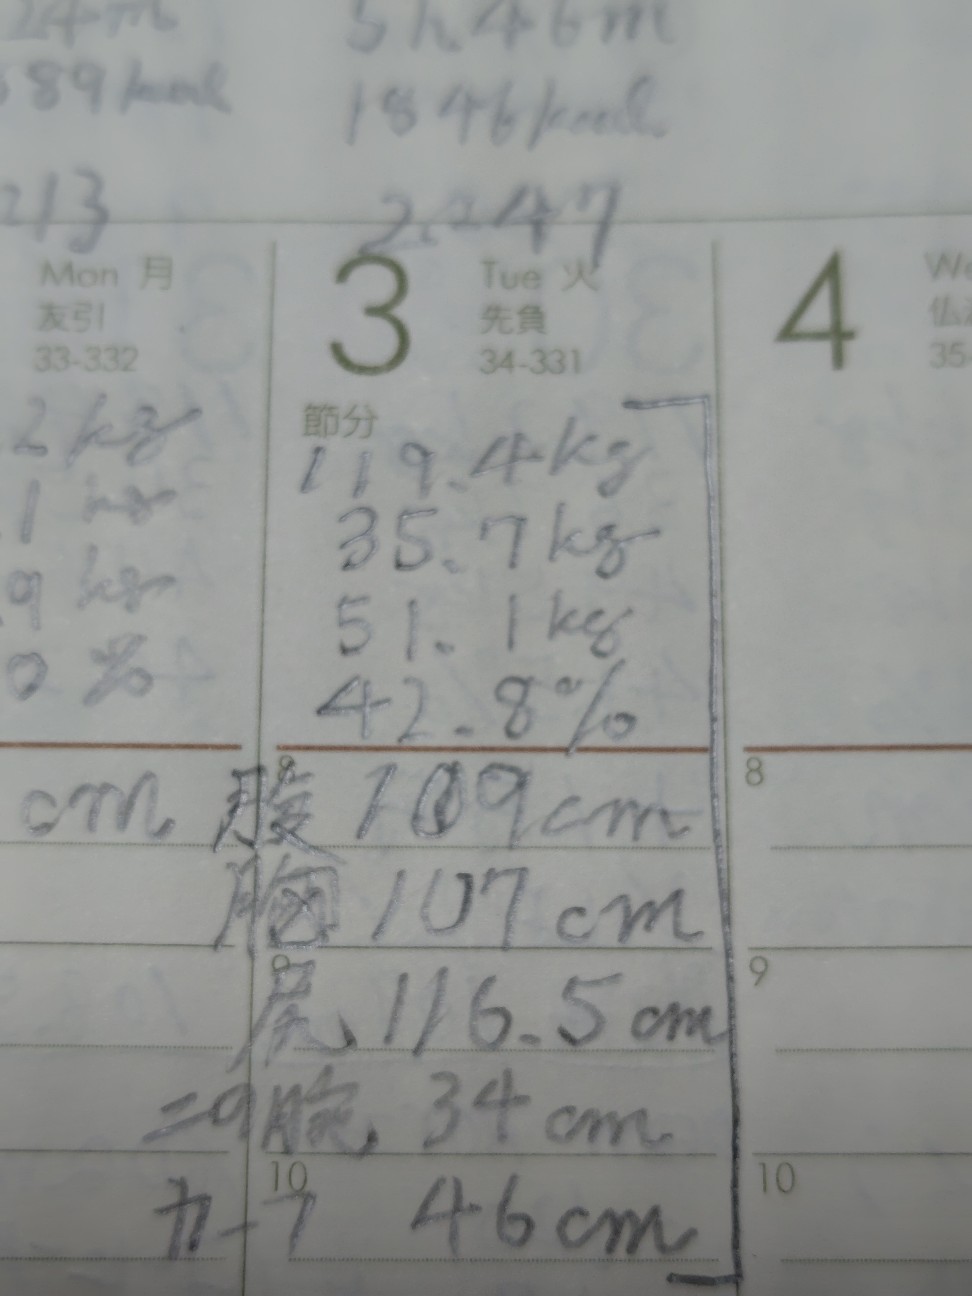 24m 5h.46m
689/kcal 1846/kcal
213 2.247
Mon 月 3 Tue 火 4 We
友引 先負 仏
33-332 34-331 35-
節分
2kg 119.4kg
.1kg 35.7kg
.9kg 51.1kg
0% 42.8%
8 8
cm 腹 109cm
胸 107cm
9 9
尻 116.5cm
二の腕 34cm
10 10
カーフ 46cm